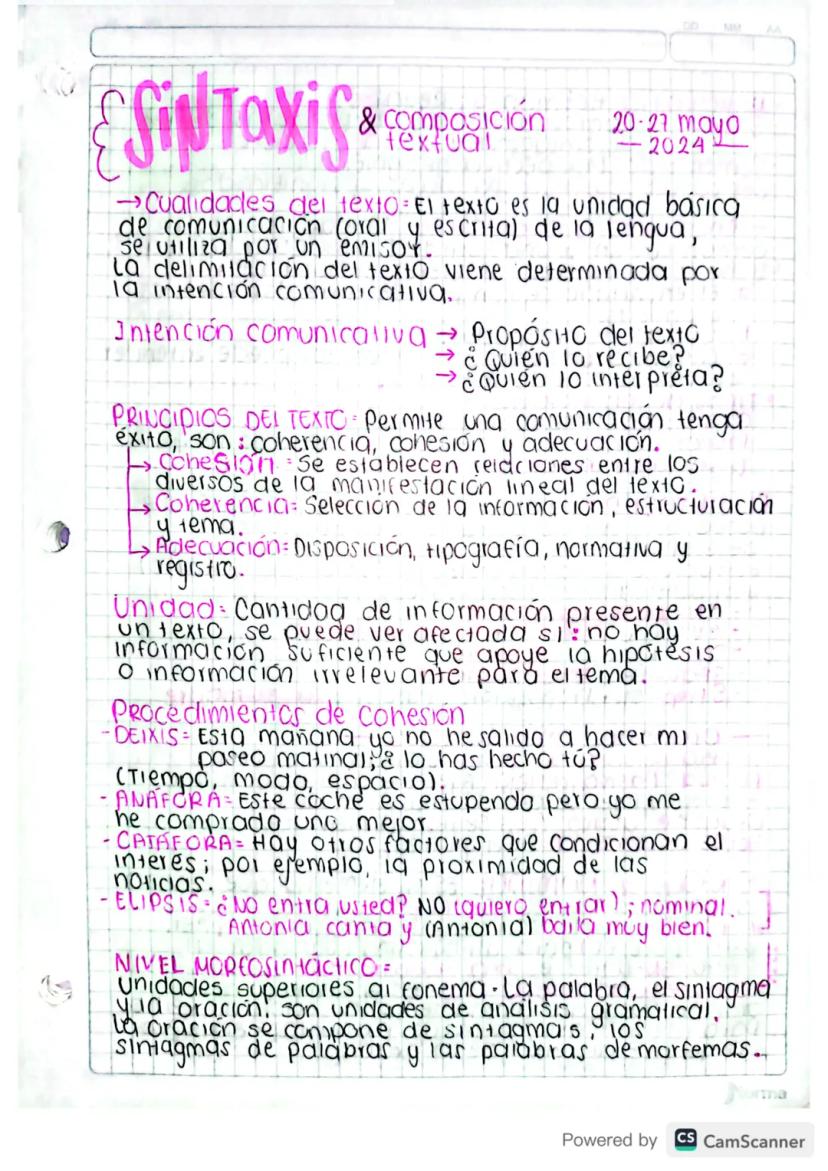 DD MM AA
SiNTaxiS & composición textual
20-27 mayo 2024
→Cualidades del texto= El texto es la unidad básica
de comunicación (oral y escrita) de la lengua,
se utiliza por un emisor.
La delimitación del texto viene determinada por
la intención comunicativa.
Intención comunicativa → Propósito del texto
→ ¿Quién lo recibe?
→ ¿Quién lo interpreta?
PRINCIPIOS DEL TEXTO= Permite una comunicación tenga
éxito, son: coherencia, cohesión y adecuación.
→Cohesión= Se establecen relaciones entre los
diversos de la manifestación lineal del texto.
→Coherencia= Selección de la información, estructuración
y tema.
→Adecuación= Disposición, tipografía, normativa y
registro.
Unidad= Cantidad de información presente en
un texto, se puede ver afectada si: no hay
información suficiente que apoye la hipótesis
o información irrelevante para el tema.
Procedimientos de cohesión
-DEIXIS= Esta mañana yo no he salido a hacer mi
paseo matinal; ¿lo has hecho tú?
(Tiempo, modo, espacio).
- ANÁFORA= Este coche es estupendo pero yo me
he comprado uno mejor.
- CATÁFORA= Hay otros factores que condicionan el
interés; por ejemplo, la proximidad de las
noticias.
- ELIPSIS= ¿No entra usted? NO (quiero entrar); nominal.
Antonia canta y (Antonia) baila muy bien.
NIVEL MORFOSintáctico=
Unidades superiores al fonema. La palabra, el sintagma
y la oración. son unidades de análisis gramatical.
La oración se compone de sintagmas, los
sintagmas de palabras y las palabras de morfemas.
Norma
Powered by CS CamScanner